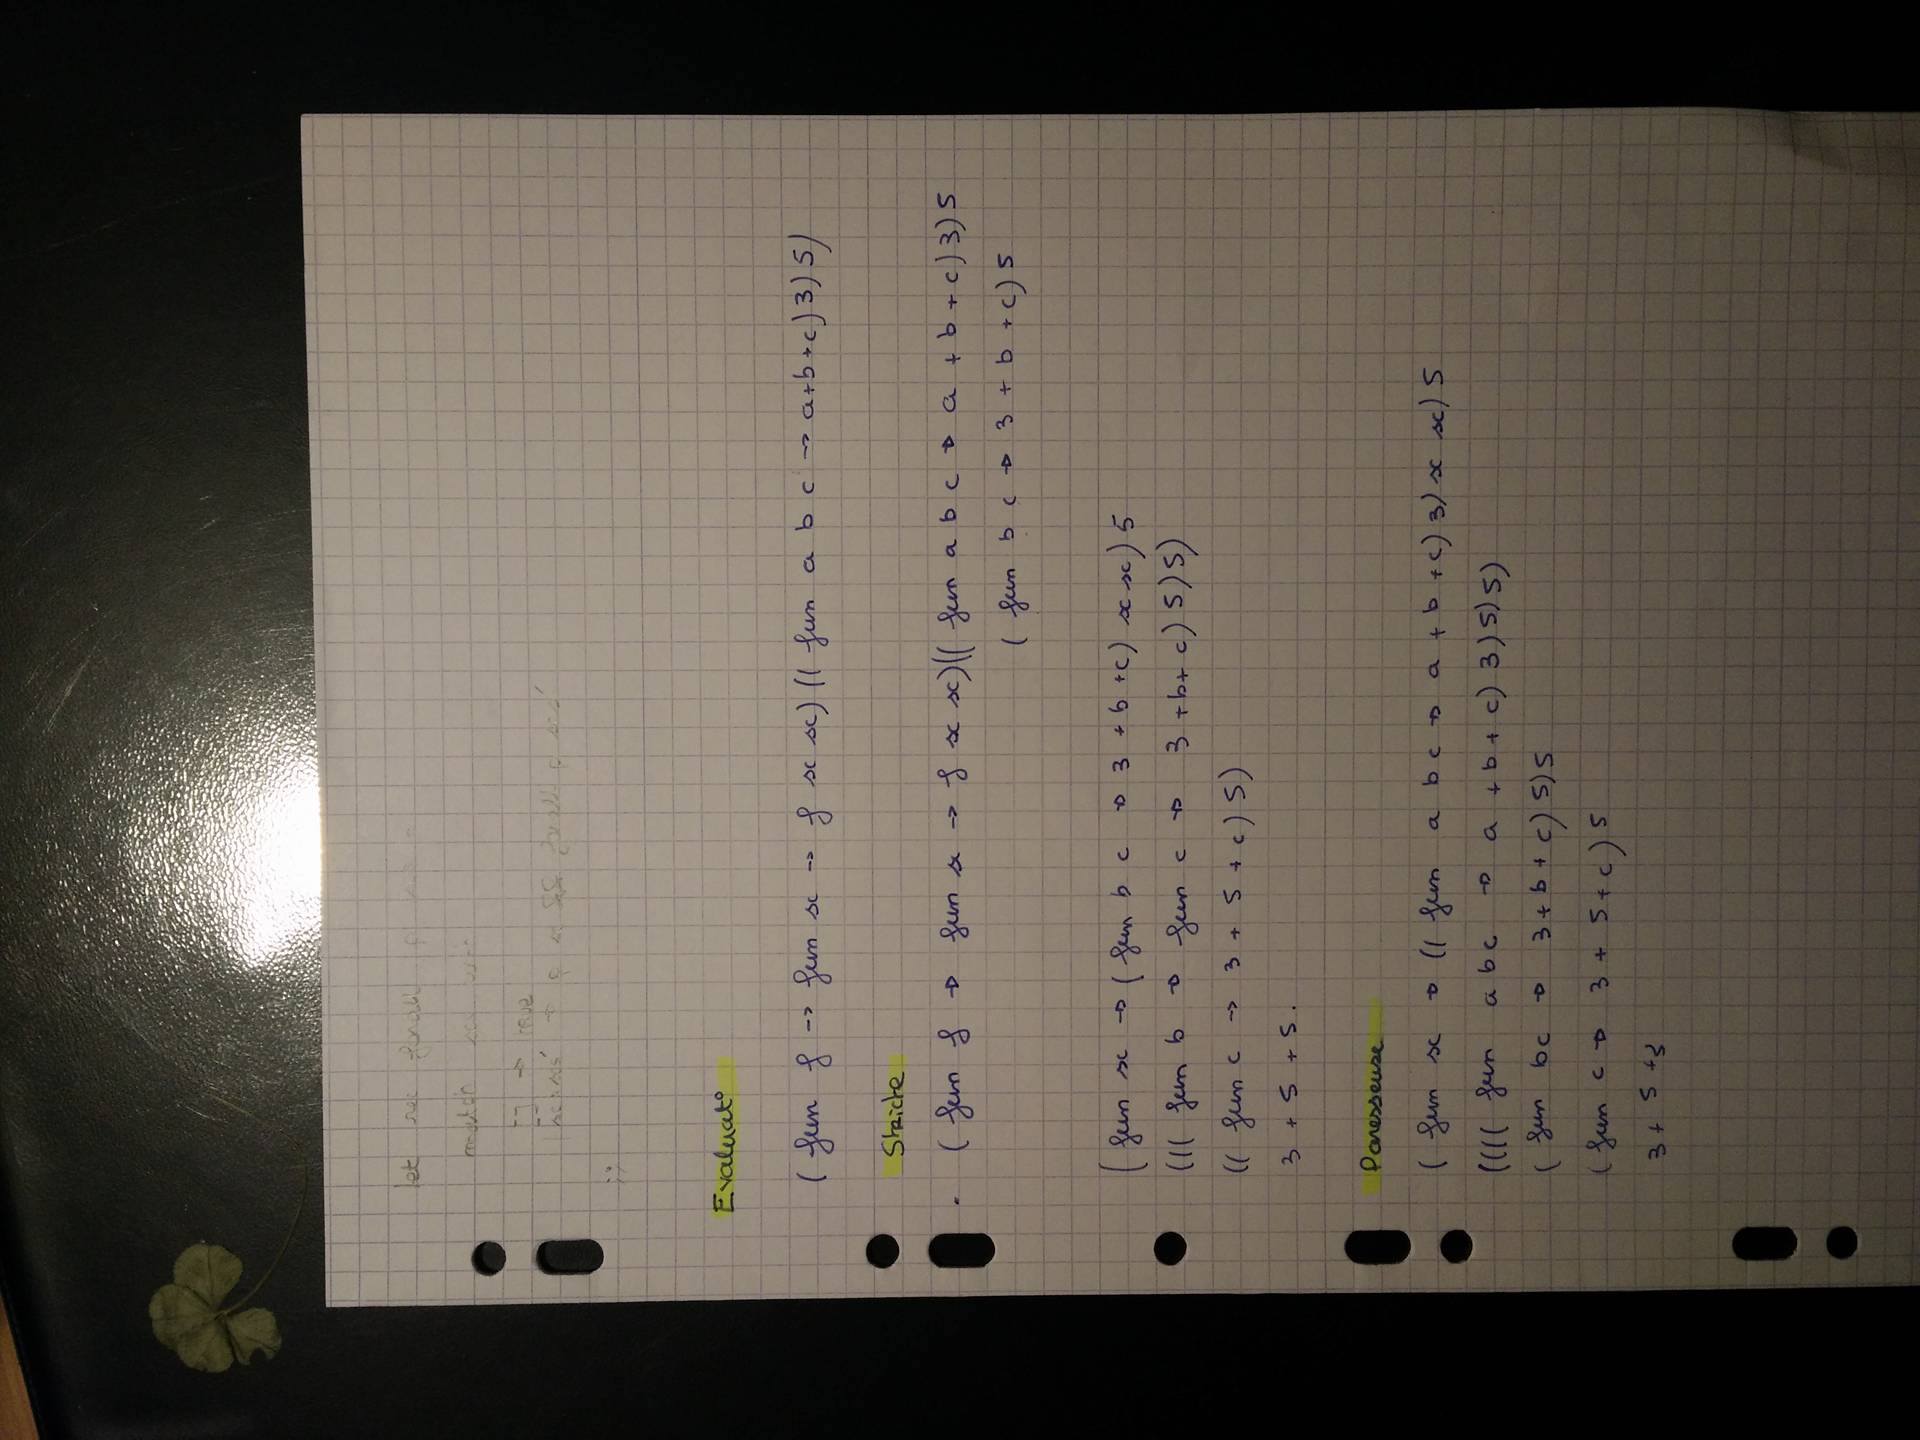 let rec forall p
match with
[] -> true
;;
Evaluat°
(fun f -> fun x -> f x x)((fun a b c -> a+b+c)3)5)
Stricte
. (fun f -> fun x -> f x x)((fun a b c -> a + b + c)3)5
(fun b c -> 3 + b + c)5
(fun x -> (fun b c -> 3 + b + c) x x)5
(((fun b -> fun c -> 3 + b + c)5)5)
((fun c -> 3 + 5 + c)5)
3 + 5 + 5.
Paresseuse
(fun x -> ((fun a bc -> a + b + c)3)x x)5
((((fun abc -> a + b + c)3)5)5)
(fun bc -> 3 + b + c)5)5
(fun c -> 3 + 5 + c)5
3 + 5 + 5